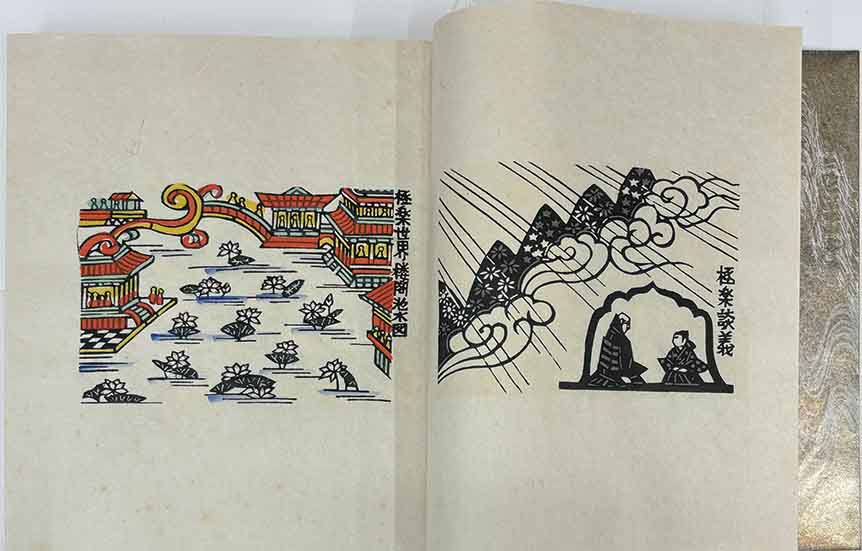 極楽談義
極楽世界楼閣池水図